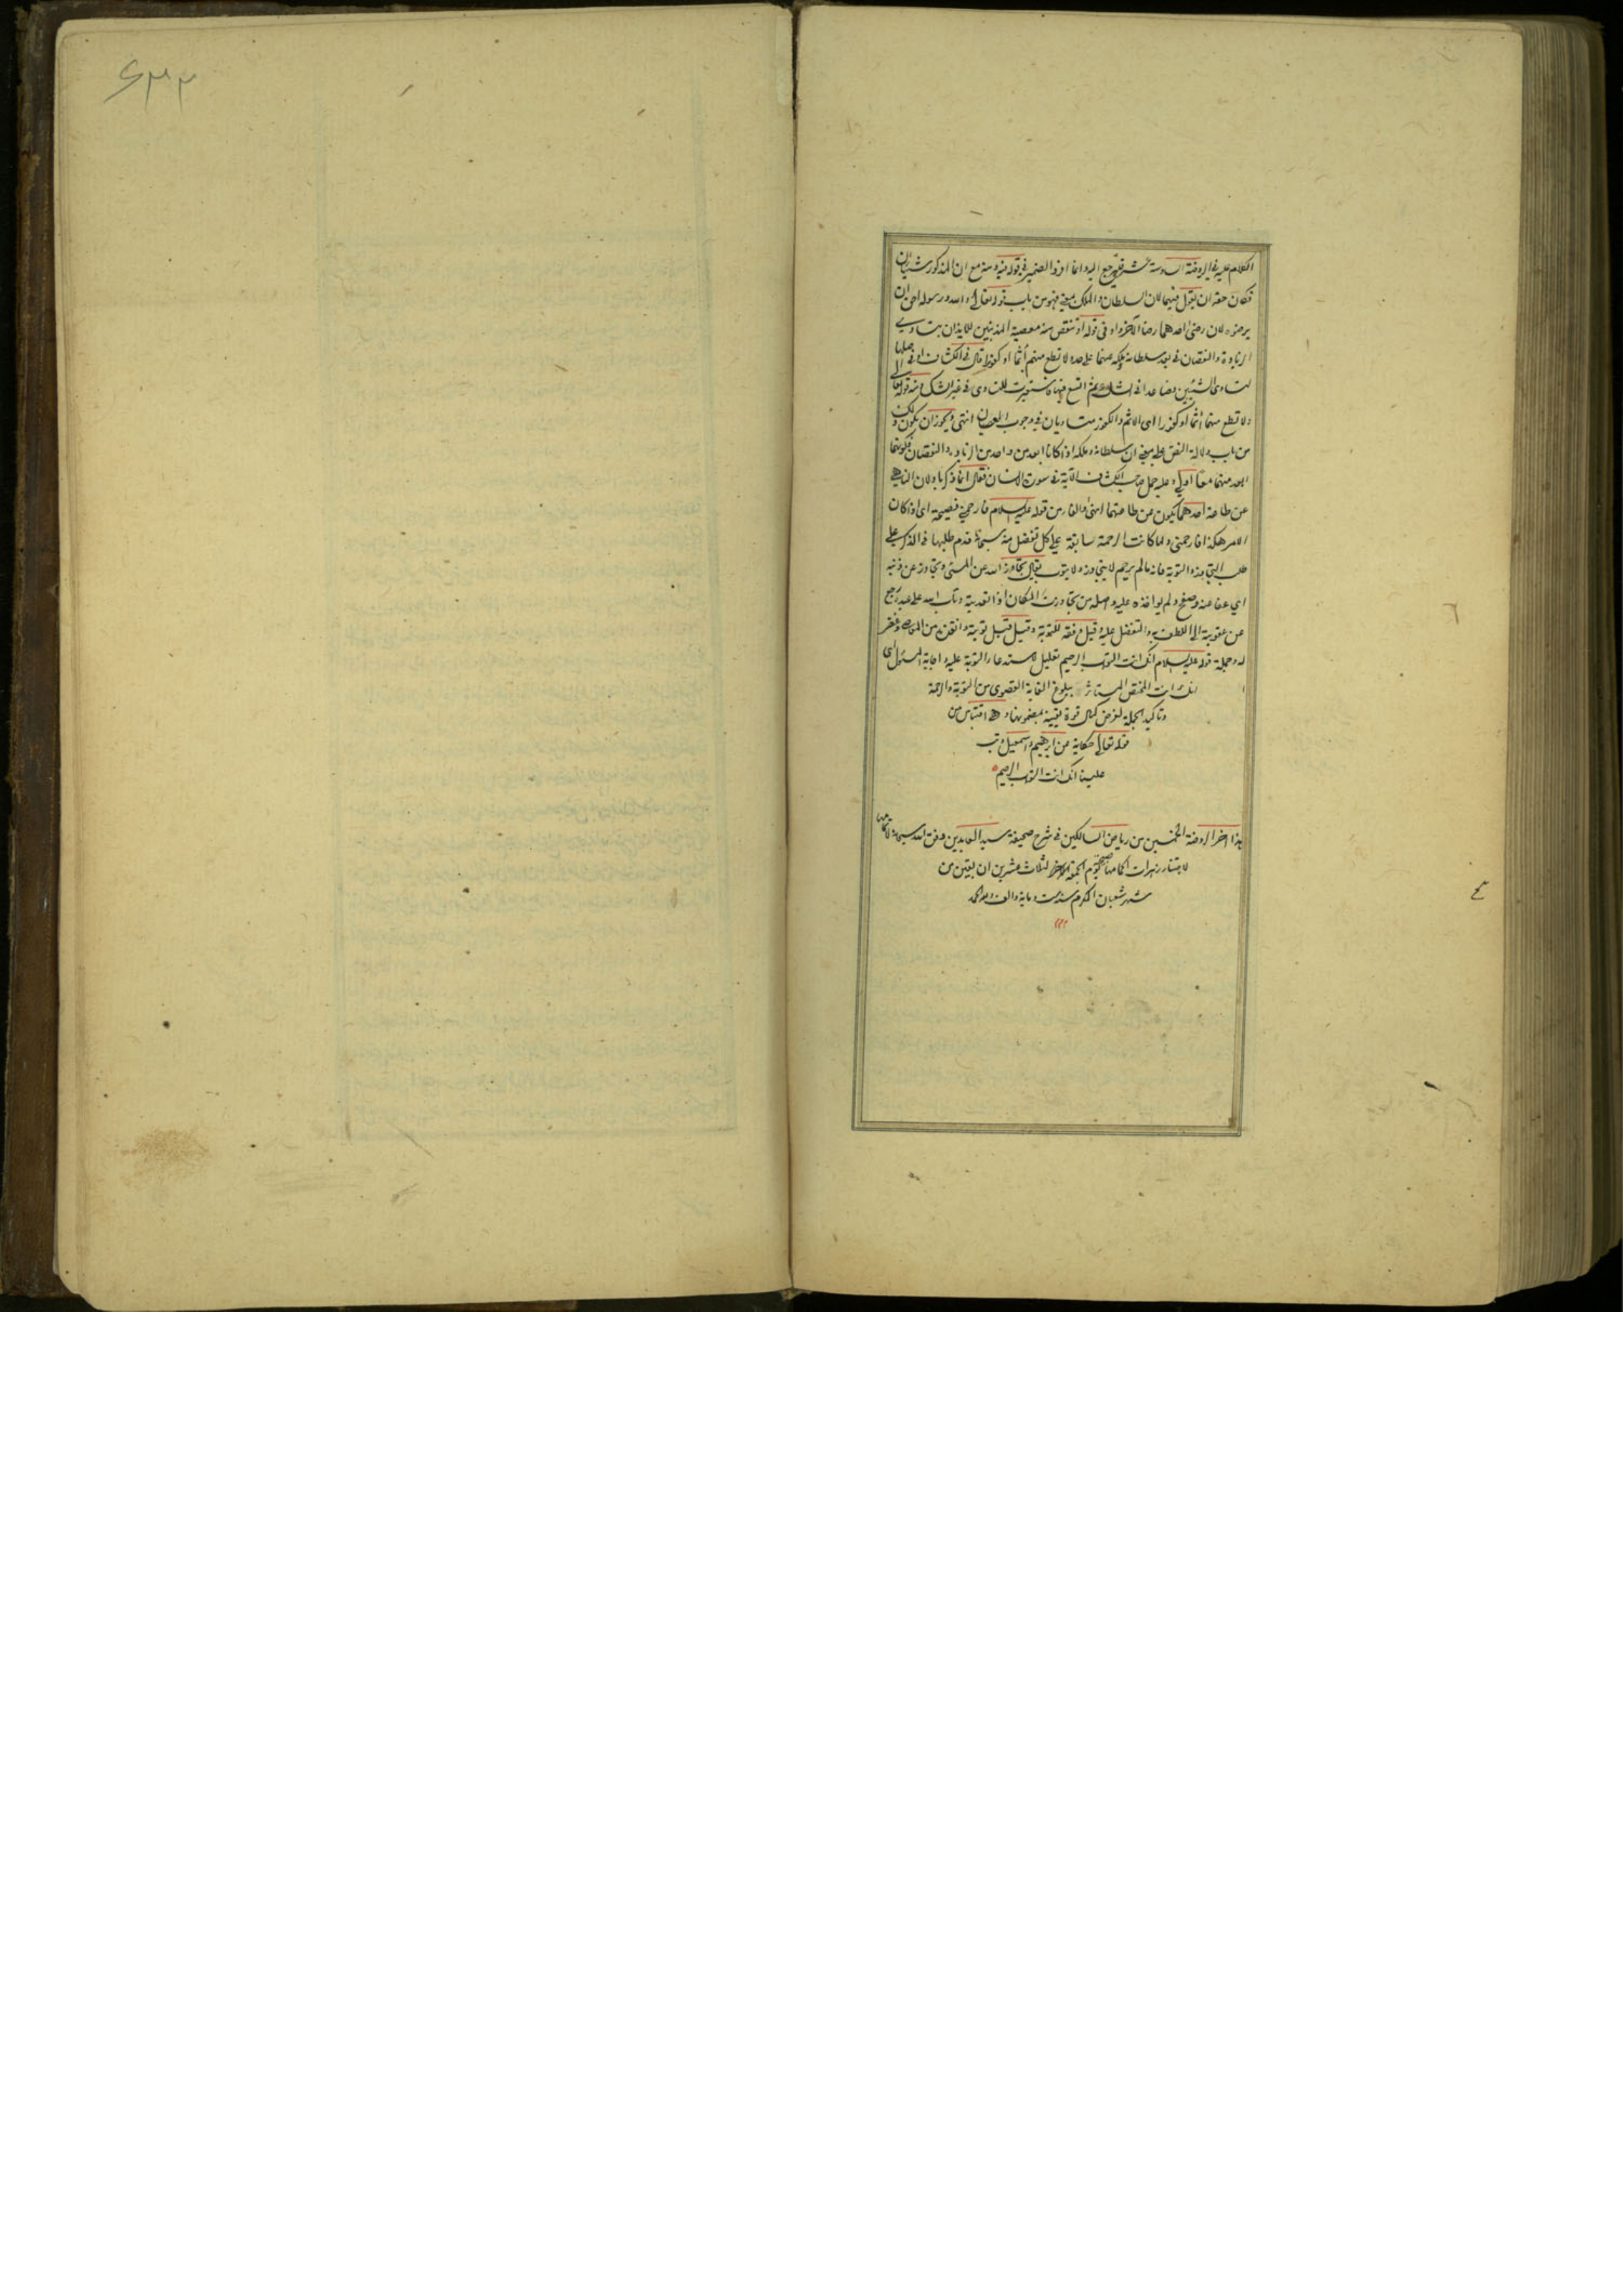 الكلام عليه فى الروضة السادسة عشر فليرجع اليه وانما افرد الضمير فى قوله فيه ومنه مع ان المذكور شيئان
فكان حقه ان يقول فيهما لان السلطان والملك بمعنى فهو من باب قوله تعالى والله ورسوله احق ان
يرضوه لان رضى احدهما رضا الآخر واو فى قوله او تنقص منه معصية المذنبين للايذان بتساوى
الزيادة والنقصان فى بعد سلطانه وملكه عنهما على حد ولا تطع منهم آثما او كفورا قال فى الكشاف او فى اصلها
لتساوى الشيئين فصاعدا فى الشك ثم اتسع فيها فاستعيرت للتساوى فى غير الشك ومنه قوله تعالى
ولا تطع منهم آثما او كفورا اى الاثم والكفور متساويان فى وجوب العصيان انتهى ويجوز ان يكون ذلك
من باب دلالة النص على معنى ان سلطانه وملكه اذا كانا ابعد من واحد من الزيادة والنقصان فكونهما
ابعد منهما معا اولى وعليه حمل صاحب الكشاف الآية فى سورة الانسان فقال انما ذكر باو لان الناهى
عن طاعة احدهما يكون عن طاعتهما انهى والفاء من قوله عليه السلام فارحمنى فصيحة اى اذا كان
الامر هكذا فارحمنى ولما كانت الرحمة سابقة على كل تفضل منه سبحانه قدم طلبها فى الذكر على
طلب التجاوز والتوبة فانه مالم يرحم لا يتجاوز ولا يتوب يقال تجاوز الله عن المسئ وتجاوز عن ذنبه
اي عفا عنه وصفح ولم يؤاخذه عليه واصله من تجاوزت المكان اذا تعديته وتاب الله على عبده رجع
عن عقوبته الى اللطف به والتفضل عليه وقيل وفقه للتوبة وقيل قبل توبته وانقذه من المعاصى وغفر
له وجملة قوله عليه السلام انك انت التواب الرحيم تعليل لاستدعاء التوبة عليه واجابة المسئول اى
انك انت المختص المستاثر ببلوغ الغاية القصوى من التوبة والرحمة
وتاكيد الجملة لغرض كمال قوة يقينه بمضمونها وهو اقتباس من
قوله تعالى حكاية عن ابرهيم واسمعيل وتب
علينا انك انت التواب الرحيم
هذا اخر الروضة الخمسين من رياض السالكين فى شرح صحيفة سيد العابدين وفق الله سبحانه لاتمامها
لاجتناء زهرات اكمامها ضحى يوم الجمعة لثلاث عشرين ان بقين من
شهر شعبان المكرم سنة ست ومائة والف ولله الحمد